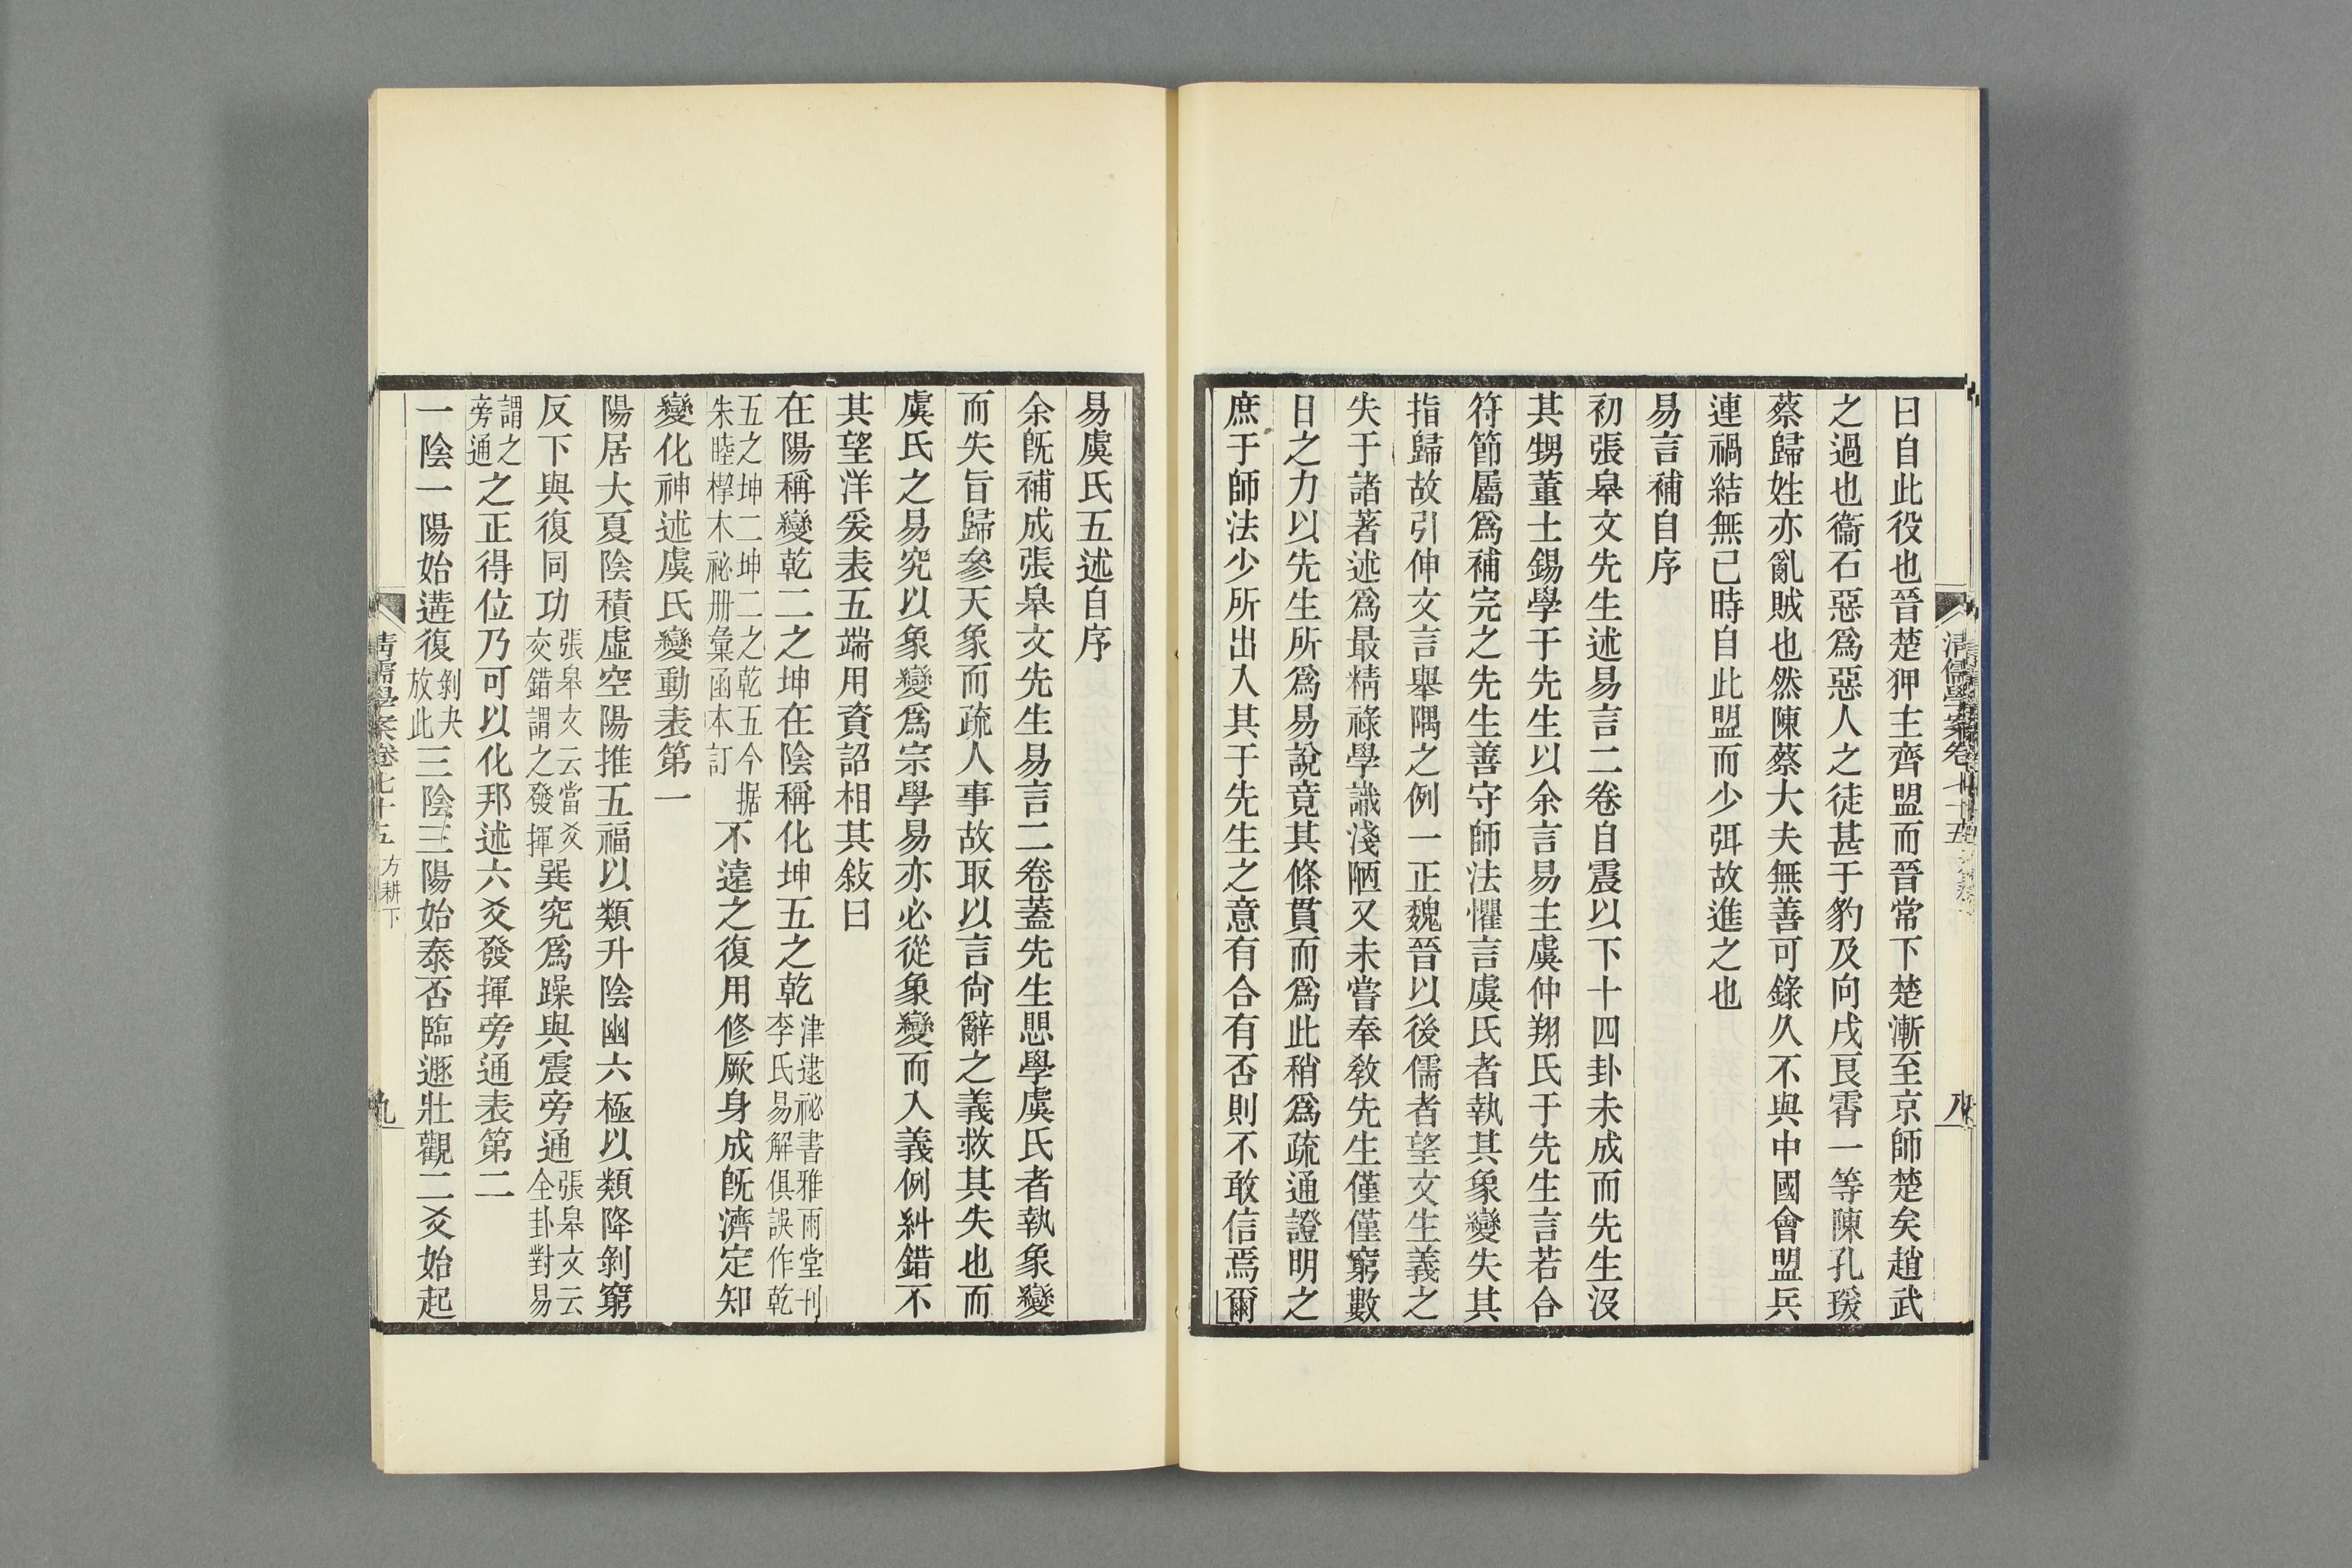 曰自此役也晉楚狎主齊盟而晉常下楚漸至京師楚矣趙武
之過也衞石惡爲惡人之徒甚于豹及向戌良霄一等陳孔瑗
蔡歸姓亦亂賊也然陳蔡大夫無善可錄久不與中國會盟兵
連禍結無已時自此盟而少弭故進之也
易言補自序
初張皋文先生述易言二卷自震以下十四卦未成而先生沒
其甥董士錫學于先生以余言易主虞仲翔氏于先生言若合
符節屬爲補完之先生善守師法懼言虞氏者執其象變失其
指歸故引伸文言舉隅之例一正魏晉以後儒者望文生義之
失于諸著述爲最精祿學識淺陋又未嘗奉敎先生僅僅窮數
日之力以先生所爲易說竟其條貫而爲此稍爲疏通證明之
庶于師法少所出入其于先生之意有合有否則不敢信焉爾
清儒學案卷七十五
八
易虞氏五述自序
余旣補成張皋文先生易言二卷蓋先生思學虞氏者執象變
而失旨歸參天象而疏人事故取以言尙辭之義救其失也而
虞氏之易究以象變爲宗學易亦必從象變而入義例糾錯不
其望洋爰表五端用資詔相其敍曰
在陽稱變乾二之坤在陰稱化坤五之乾津逮祕書雅雨堂刊李氏易解俱誤作乾
五之坤二坤二之乾五今据朱睦㮮木祕册彙函本訂不遠之復用修厥身成旣濟定知
變化神述虞氏變動表第一
陽居大夏陰積虛空陽推五福以類升陰幽六極以類降剝窮
反下與復同功張皋文云當爻交錯謂之發揮巽究爲躁與震旁通張皋文云全卦對易
謂之旁通之正得位乃可以化邦述六爻發揮旁通表第二
一陰一陽始遘復剝夬放此三陰三陽始泰否臨遯壯觀二爻始起
清儒學案卷七十五 方耕下
九